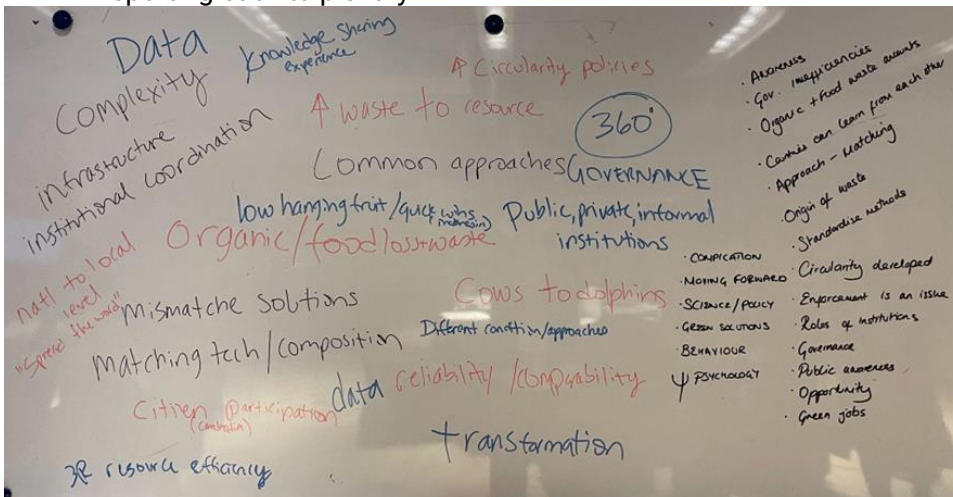 Data
Knowledge Sharing
experience
Complexity
↑ Circularity policies
↑ waste to resource
360°
infrastructure
institutional coordination
Common approaches
GOVERNANCE
low hanging fruit / quick wins
Public, private, informal
institutions
Organic/food loss+waste
natl to local
level
"Spread the word"
mismatche solutions
Cows to dolphins
Different condition/approaches
Matching tech/composition
data reliability /
Citizen participation
transformation
3R resource efficiency
· COMPLICATION
· MOVING FORWARD
· SCIENCE/POLICY
· GREEN SOLUTIONS
· BEHAVIOUR
Ψ PSYCHOLOGY
· Awareness
· Gov. inefficiencies
· Organic + food waste amounts
· can learn from each other
· Approach - Matching
· Origin of waste
· Standardise methods
· Circularity developed
· Enforcement is an issue
· Roles of institutions
· Governance
· Public awareness
· Opportunity
· Green jobs